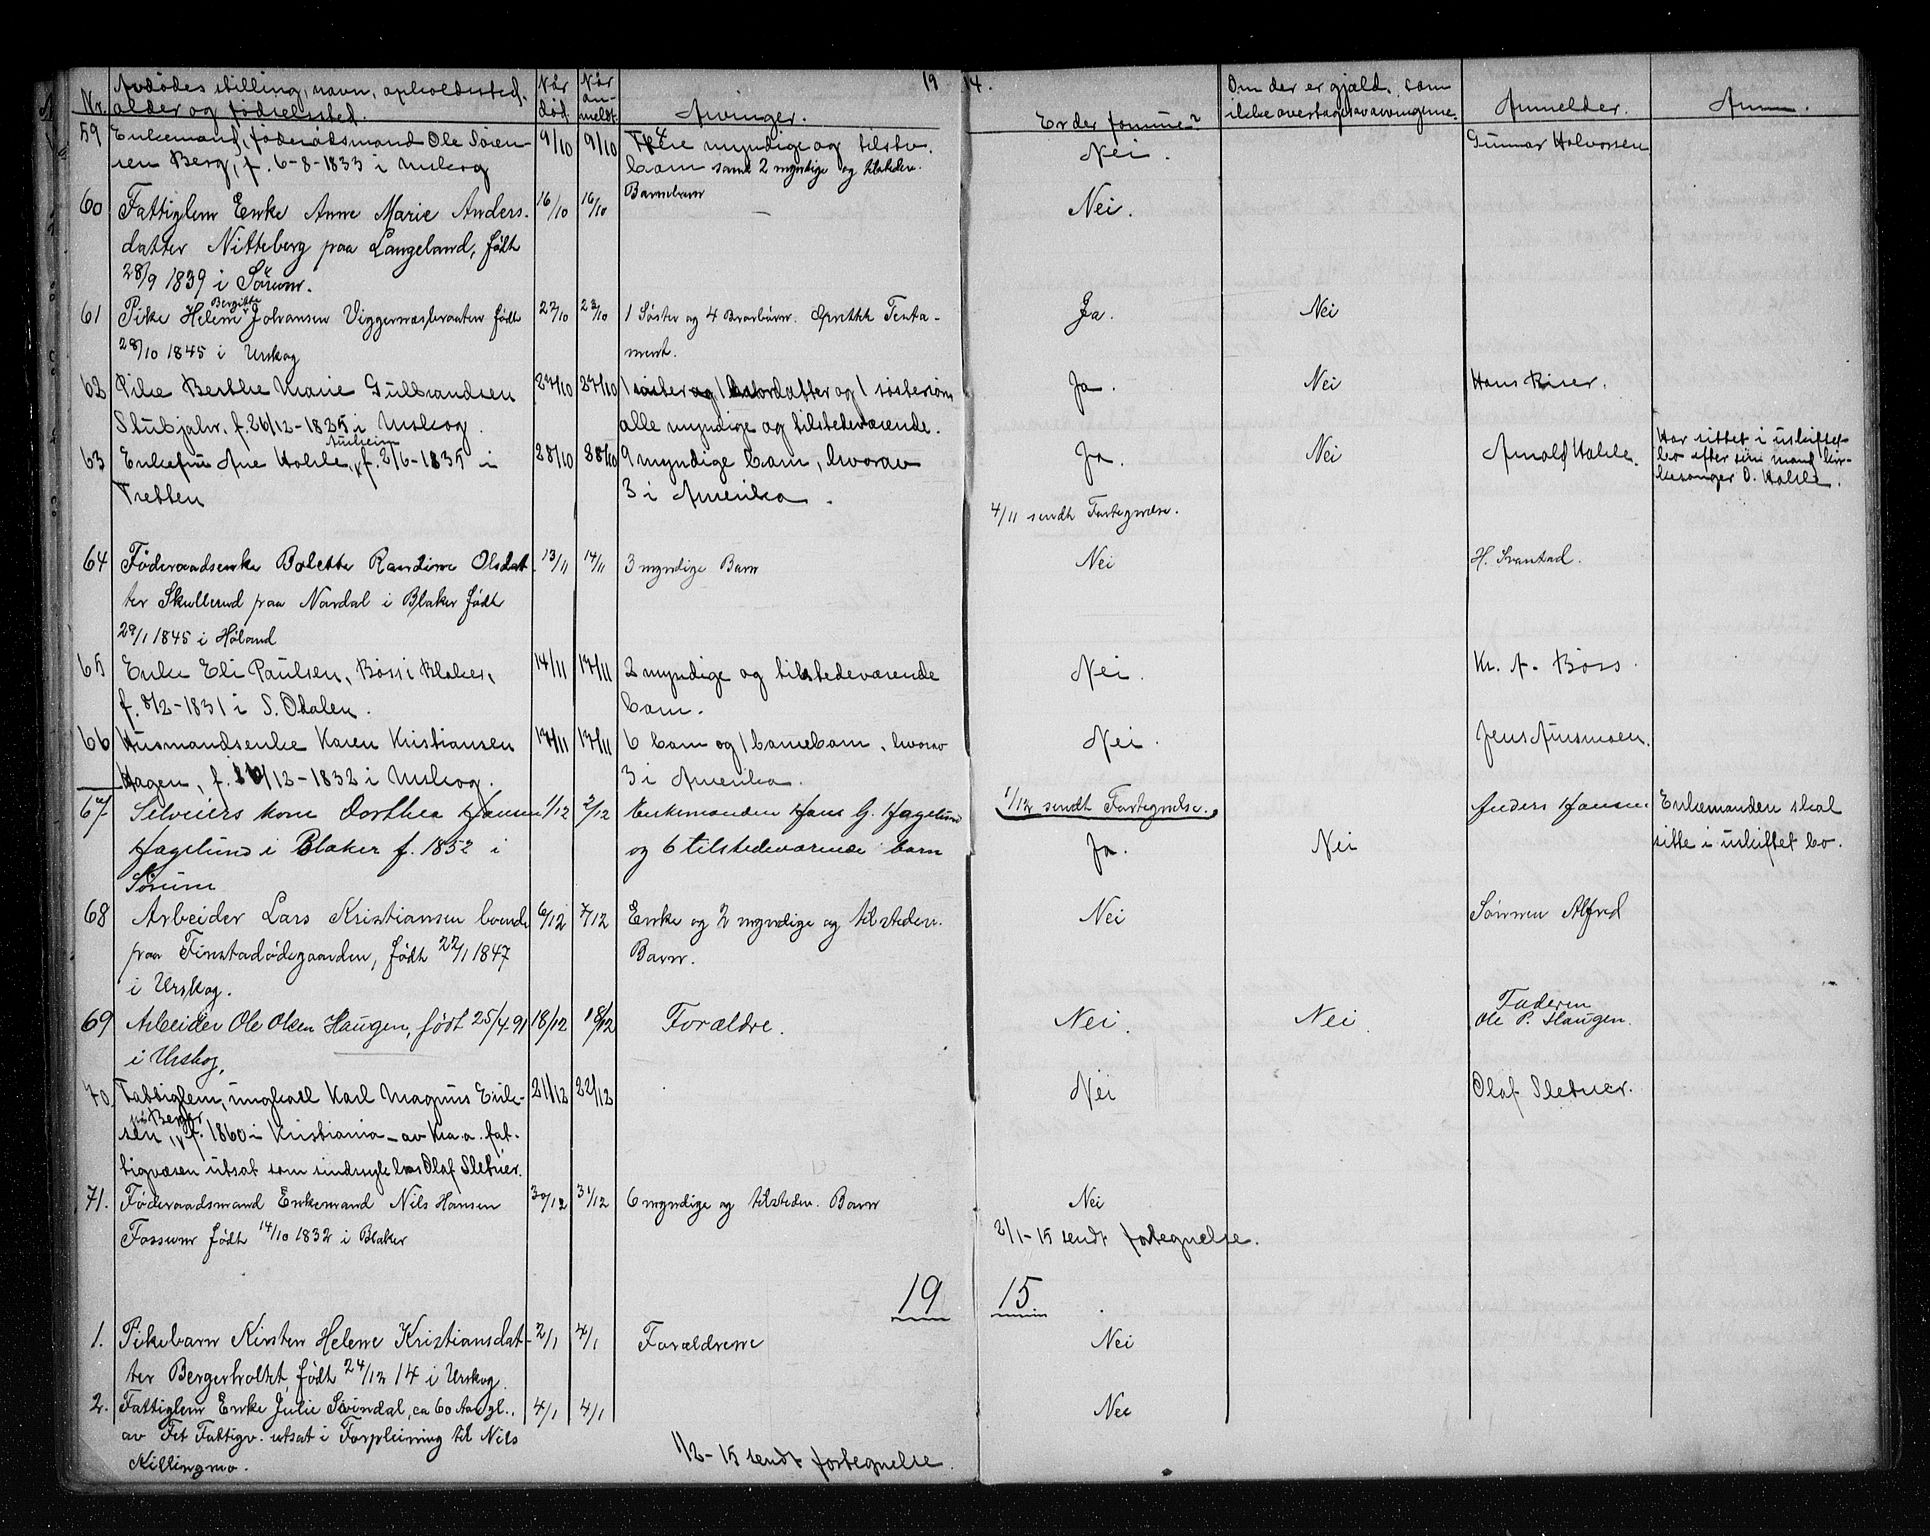 19 14.
Avdødes stilling, navn, opholdssted,
Nr. alder og fødselssted.
Når død.
Når anmeldt.
Arvinger.
Er der formue?
Om der er gjæld, som
ikke overtages av arvingene.
Anmelder.
Anm.
59 Enkemand, føderådsmand Ole Søren-
sen Berg, f. 6-8-1833 i Urskog
9/10 9/10
4 myndige og tilstv.
barn samt 2 myndige og tilstedev.
Barnebarn
Nei.
Gunnar Halvorsen
60 Fattiglem Enke Anne Marie Anders-
datter Nitteberg paa Langeland, født
28/9 1839 i Sørum.
16/10 16/10
—
Nei.
61 Pike Helene Bergitte Johansen Viggernæsbraaten født
28/10 1845 i Urskog
22/10 23/10
1 Søster og 4 Brorbørn. Oprettk Testa-
ment.
Ja.
Nei
62 Pike Berthe Marie Gulbrandsen
Stubjahr, f. 26/12-1825 i Urskog.
27/10 27/10
1 søster og 1 brordatter og 1 søstersøn
alle myndige og tilstedeværende.
Ja.
Nei
Hans Riser.
63 Enkefru Ane Holsle, Aurheim f. 2/6-1835 i
Tretten
28/10 28/10
9 myndige barn, hvorav
3 i Amerika.
Ja.
Nei
Arnold Holsle.
Har sittet i uskiftet
bo efter sin mand kir-
kesanger O. Holsle.
4/11 sendt Fortegnelse.
64 Føderaadsenke Bolette Randine Olsdat-
ter Skullerud paa Nordal i Blaker født
29/1 1845 i Høland
13/11 14/11
3 myndige Barn
Nei
H. Svanstad.
65 Enke Eli Paulsen, Børs i Blaker,
f. 8/2-1831 i S. Odalen.
14/11 17/11
2 myndige og tilstedeværende
barn.
Nei.
Kr. A. Børs
66 Husmandsenke Karen Kristiansen
Hagen, f. 16/12-1832 i Urskog.
17/11 17/11
6 barn og 1 barnebarn, hvorav
3 i Amerika.
Nei.
Jens Aursmoen.
1/12 sendt Fortegnelse.
67 Selveiers kone Dorthea Hansen
Hagelund i Blaker f. 1852 i
Sørum
1/12 2/12
Enkemanden Hans G. Hagelund
og 6 tilstedeværende barn
Ja.
Nei
Anders Hansen
Enkemanden skal
sitte i uskiftet bo.
68 Arbeider Lars Kristiansen boende
paa Finstadødegaarden, født 22/1 1847
i Urskog.
6/12 7/12
Enke og 2 myndige og tilstedev.
Barn.
Nei
Sønnen Alfred
69 Arbeider Ole Olsen Haugen, født 25/4 91
i Urskog,
18/12 18/12
Forældre.
Nei.
Nei.
Faderen
Ole P. Haugen.
70. Fattiglem, ungkarl Karl Magnus Erik-
sen, på Berger f. 1860 i Kristiania – av Kra.a. fat-
tigvæsen utsat som sindssyk hos Olaf Sletner.
21/12 22/12
Nei
Olaf Sletner.
71. Føderaadsmand Enkemand Nils Hansen
Fossum født 14/10 1832 i Blaker
30/12 31/12
6 myndige og tilstedev. Barn
Nei
2/1-15 sendt fortegnelse.
19 15
1. Pikebarn Kirsten Helene Kristiansdat-
ter Bergerholtet, født 24/12 14 i Urskog.
2/1 4/1
Forældrene
Nei
2. Fattiglem Enke Julie Svindal, ca 60 Aar gl.,
av Fet Fattigv. utsat i Forpleining til Nils
Killingmo.
4/1 4/1
Nei
1/2-15 sendt fortegnelse.